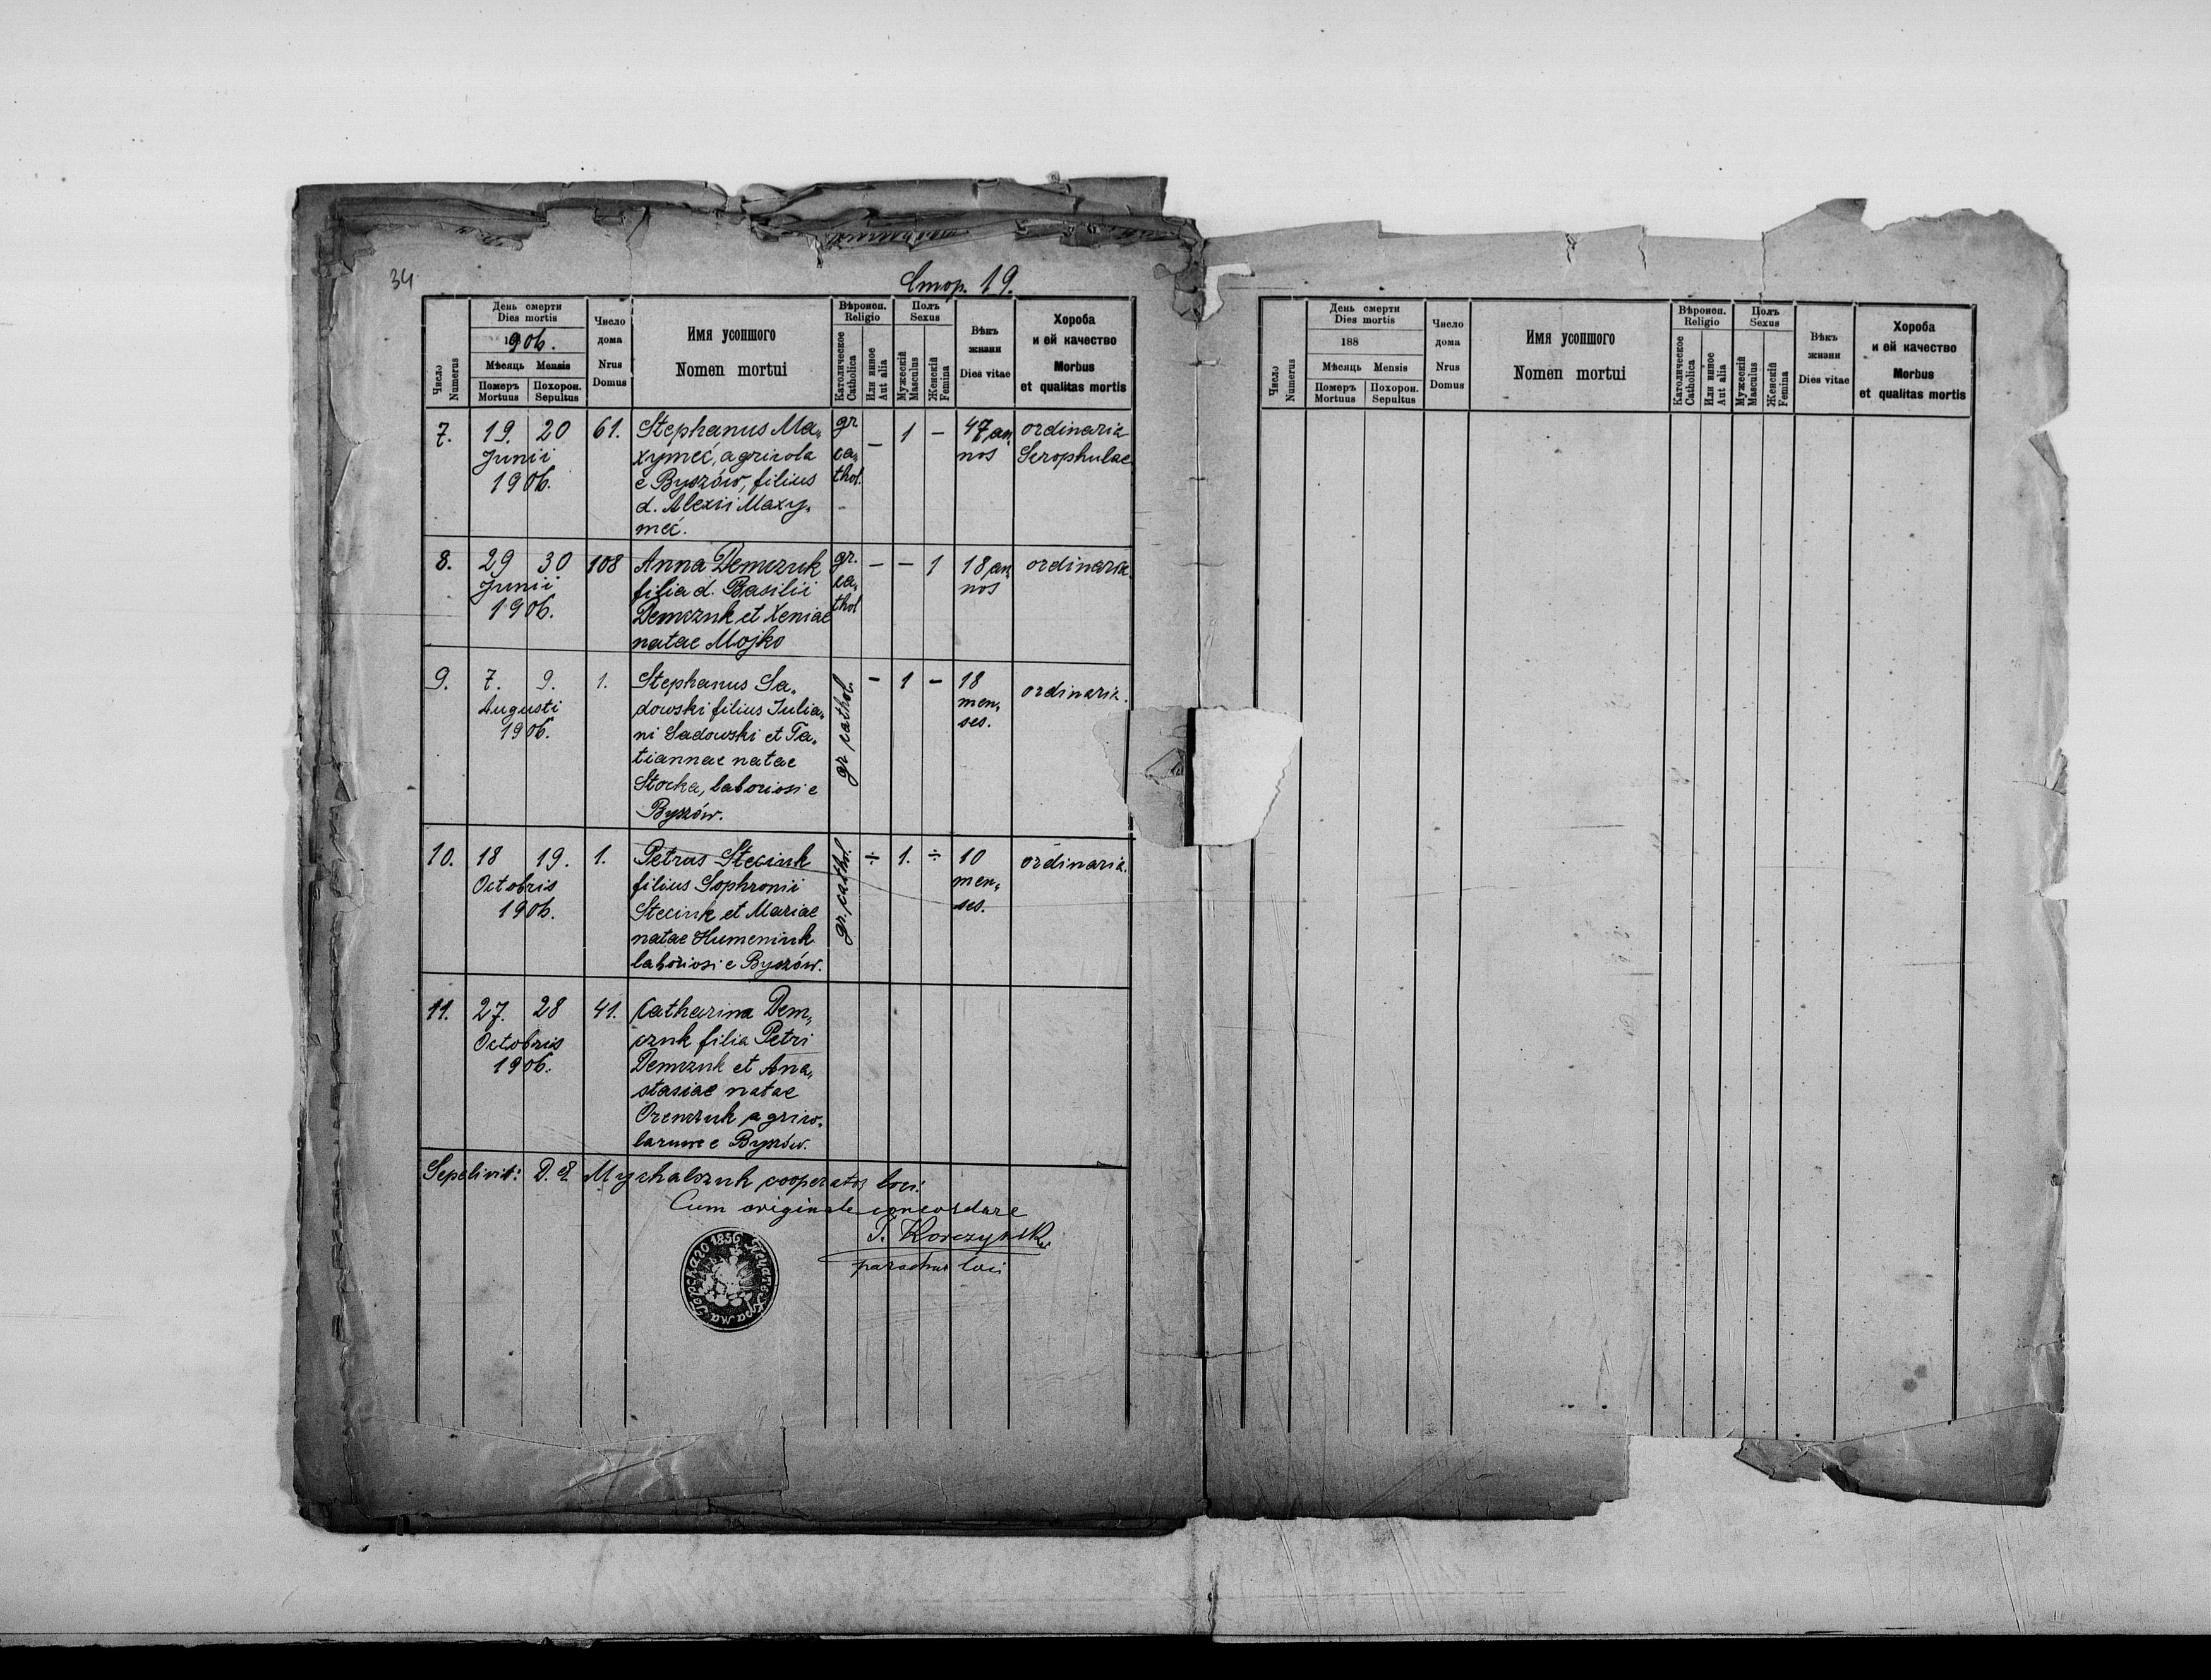 34
Стор. 19.
Число
Numerus
День смерти
Dies mortis
1906.
Мѣсяць Mensis
Померъ
Mortuus
Похорон.
Sepultus
Число
дома
Nrus
Domus
Имя усопшого
Nomen mortui
Вѣроисп.
Religio
Католическое
Catholica
Или инное
Aut alia
Полъ
Sexus
Мужескій
Masculus
Женскій
Femina
Вѣкъ
жизни
Dies vitae
Хороба
и ей качество
Morbus
et qualitas mortis
7. 19. 20 61. Stephanus Ma„ gr – 1 – 47 an ordinaria
Junii xymeć, agricola ca„ nos Scrophulae
1906. e Byszów, filius thol.
d. Alexii Maxy„
meć.
8. 29 30 108 Anna Demczuk gr. – – 1 18 an ordinaria.
Junii filia d. Basilii ca„ nos
1906. Demczuk et Xeniae thol
natae Mojko
9. 7. 9. 1. Stephanus Sa„ gr cathol. – 1 – 18 ordinaria.
Augusti dowski filius Julia„ men„
1906. ni Sadowski et Ta„ ses.
tiannae natae
Stocka, laboriosi e
Byszów.
10. 18 19. 1. Petrus Steciuk gr. cathol. ÷ 1. ÷ 10 ordinaria.
Octobris filius Sophronii men„
1906. Steciuk et Mariae ses.
natae Humeniuk
laboriosi e Byszów.
11. 27. 28 41. Catharina Dem„
Octobris czuk filia Petri
1906. Demczuk et Ana„
stasiae natae
Oremczuk agrico„
larum e Byszów.
Sepelivit: D. E. Mychalczuk cooperator loci.
Cum originale concordare
J. Korczyński
parochus loci
1856
Число
Numerus
День смерти
Dies mortis
188
Мѣсяць Mensis
Померъ
Mortuus
Похорон.
Sepultus
Число
дома
Nrus
Domus
Имя усопшого
Nomen mortui
Вѣроисп.
Religio
Католическое
Catholica
Или инное
Aut alia
Полъ
Sexus
Мужескій
Masculus
Женскій
Femina
Вѣкъ
жизни
Dies vitae
Хороба
и ей качество
Morbus
et qualitas mortis